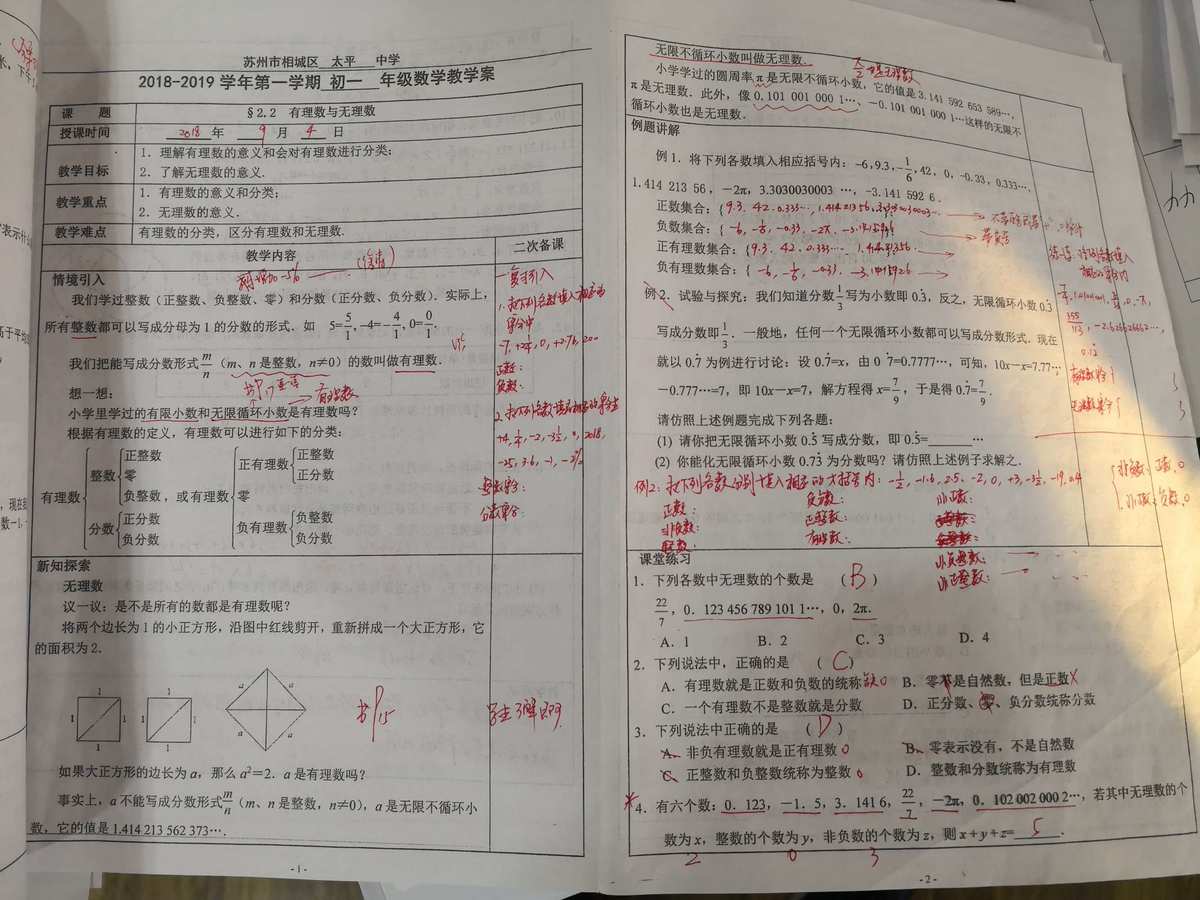 苏州市相城区 太平 中学
2018-2019 学年第一学期 初一 年级数学教学案
课 题 §2.2 有理数与无理数
授课时间 2018 年 9 月 4 日
教学目标 1. 理解有理数的意义和会对有理数进行分类;
2. 了解无理数的意义.
教学重点 1. 有理数的意义和分类;
2. 无理数的意义.
教学难点 有理数的分类, 区分有理数和无理数.
教学内容 二次备课
情境引入
我们学过整数 (正整数、负整数、零) 和分数 (正分数、负分数). 实际上,
所有整数都可以写成分母为 1 的分数的形式. 如 5=5/1, -4=-4/1, 0=0/1,
我们把能写成分数形式 m/n (m、n 是整数, n≠0) 的数叫做有理数.
有理数
想一想:
小学里学过的有限小数和无限循环小数是有理数吗?
根据有理数的定义, 有理数可以进行如下的分类:
有理数{整数{正整数 零 负整数, 分数{正分数 负分数
或有理数{正有理数{正整数 正分数 零 负有理数{负整数 负分数
一 复习引入
1. 把下列各数填入相应的
集合中
正数:
负数:
整数集合:
分数集合:
新知探索
无理数
议一议: 是不是所有的数都是有理数呢?
将两个边长为 1 的小正方形, 沿图中红线剪开, 重新拼成一个大正方形, 它
的面积为 2.
1 1 1 1
1 1 1 1
a a a a
书P15
学生了解即可
如果大正方形的边长为 a, 那么 a²=2. a 是有理数吗?
事实上, a 不能写成分数形式 m/n (m、n 是整数, n≠0), a 是无限不循环小
数, 它的值是 1.414 213 562 373….
- 1 -
无限不循环小数叫做无理数.
π/2 也是无理数
小学学过的圆周率 π 是无限不循环小数, 它的值是 3.141 592 653 589…,
π 是无理数. 此外, 像 0.101 001 000 1…, -0.101 001 000 1…这样的无限不
循环小数也是无理数.
例题讲解
例 1. 将下列各数填入相应括号内: -6, 9.3, -1/6, 42, 0, -0.33, 0.333…,
1.414 213 56, -2π, 3.3030030003 …, -3.141 592 6.
正数集合: {9.3, 42, 0.333…, 1.41421356, 3.3030030003…
负数集合: { -6, -1/6, -0.33, -2π, -3.1415926
正有理数集合: {9.3, 42, 0.333… 1.41421356.
负有理数集合: { -6, -1/6, -0.33, -3.1415926
例 2. 试验与探究: 我们知道分数 1/3 写为小数即 0.3̇, 反之, 无限循环小数 0.3̇
写成分数即 1/3. 一般地, 任何一个无限循环小数都可以写成分数形式. 现在
就以 0.7̇ 为例进行讨论: 设 0.7̇=x, 由 0.7̇=0.7777…, 可知, 10x-x=7.77…
-0.777…=7, 即 10x-x=7, 解方程得 x=7/9, 于是得 0.7̇=7/9.
请仿照上述例题完成下列各题:
(1) 请你把无限循环小数 0.5̇ 写成分数, 即 0.5̇=______…
(2) 你能化无限循环小数 0.7̇3̇ 为分数吗? 请仿照上述例子求解之.
例2: 把下列各数分别填入相应的大括号内: -1/2, -1.6, 2.5, -2, 0, +3, -3½, -19, 0.4
正数: 负数: 非正数:
非负数: 正整数:
整数: 有理数: 非负整数:
非正整数:
非负数: 正数, 0
非正数: 负数, 0
课堂练习
1. 下列各数中无理数的个数是 ( B )
22/7, 0.123 456 789 101 1…, 0, 2π.
A. 1 B. 2 C. 3 D. 4
2. 下列说法中, 正确的是 ( C )
A. 有理数就是正数和负数的统称 缺0 B. 零不是自然数, 但是正数 X
C. 一个有理数不是整数就是分数 D. 正分数、零、负分数统称分数
3. 下列说法中正确的是 ( D )
A. 非负有理数就是正有理数 0 B. 零表示没有, 不是自然数
C. 正整数和负整数统称为整数 0 D. 整数和分数统称为有理数
*4. 有六个数: 0.123, -1.5, 3.141 6, 22/7, -2π, 0.102 002 000 2…, 若其中无理数的个
数为 x, 整数的个数为 y, 非负数的个数为 z, 则 x+y+z= 5 .
2 0 3
- 2 -